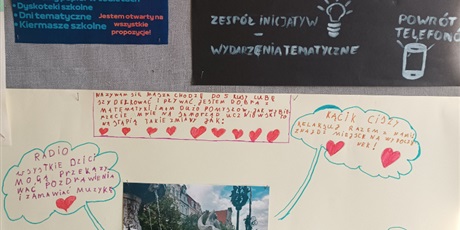 • Dyskoteki szkolne
• Dni tematyczne
• Kiermasze szkolne
Jestem otwarty na
wszystkie
propozycje!
ZESPÓŁ INICJATYW
–
WYDARZENIA TEMATYCZNE
POWRÓT
TELEFONÓ
NAZYWAM SIĘ CHODZĘ DO 5 KLASY LUBIĘ
SZYDEŁKOWAĆ I PŁYWAĆ JESTEM DOBRA Z
MATEMATYKI I MAM DUŻO POMYSŁÓW, JAK
MNIE NA SAMORZĄD UCZNIOWSKI TO
NASTĄPIĄ TAKIE ZMIANY JAK:
RADIO
WSZYSTKIE DZIECI
MOGĄ PRZEKAZY
WAĆ POZDROWIENIA
I ZAMAWIAĆ MUZYKĘ
KĄCIK CISZY
RELAKSUJ RAZEM Z NAMI
ZNAJDŹ MIEJSCE NA WYPOCZY
NEK!